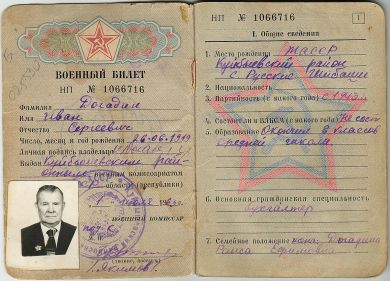 ВОЕННЫЙ БИЛЕТ
НП № 1066716
Фамилия Догадин
Имя Иван
Отчество Сергеевич
Число, месяц и год рождения 26-06-1919
Личная подпись владельца
Выдан Куйбышевским рай-
онным военным комиссариатом
области (республики)
ВОЕННЫЙ КОМИССАР
НП № 1066716
1
I. Общие сведения
1. Место рождения ТАССР
Куйбышевский район
с. Русские
2. Национальность
3. Партийность (с какого года) с 1943 г.
4. Состоит ли в ВЛКСМ (с какого года) Не сост.
5. Образование Окончил 8 классов
средней школы.
6. Основная гражданская специальность
бухгалтер
7. Семейное положение жена: Догадина
Раиса Ефимовна